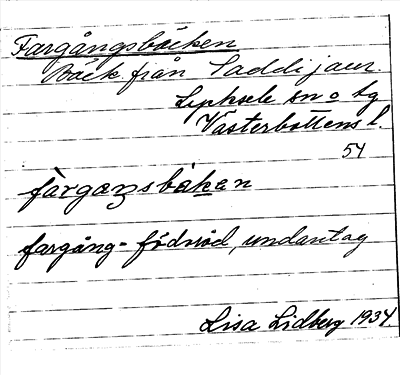 Fargångsbäcken
Bäck från Saddijaur.
Lycksele sn o tg
Västerbottens l.
54
fargaŋsbäken
fargång = födoråd, undantag
Lisa Lidberg 1934.